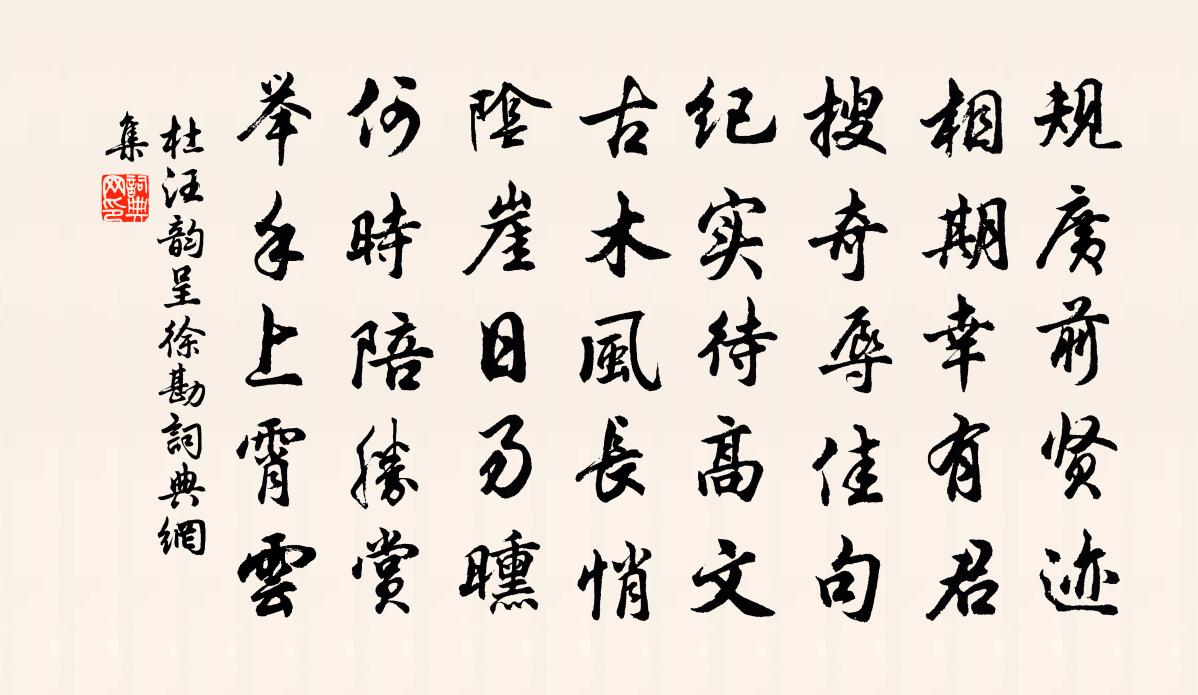 规廣前贤迹
相期幸有君
搜奇辱佳句
纪实待高文
古木風長悄
陰崖日易曛
何時陪勝赏
举手上霄雲
杜汪韵呈徐勘詞典網
集
詞典網印